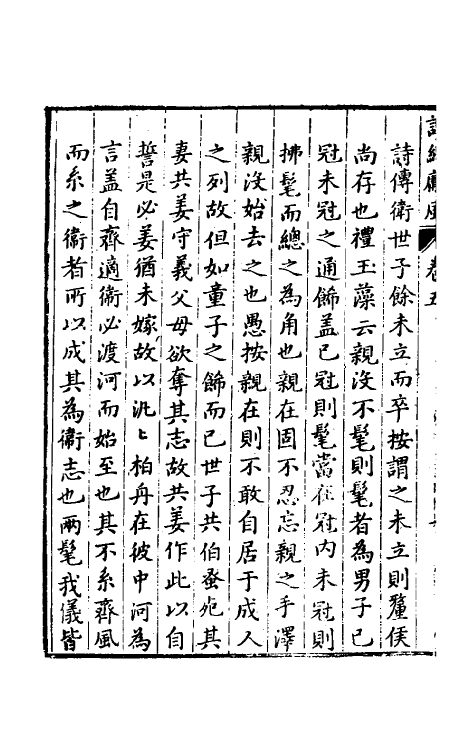 卷五
詩傳衛世子餘未立而卒按謂之未立則釐侯
尚存也禮玉藻云親没不髦則髦者為男子已
冠未冠之通飾盖已冠則髦當在冠内未冠則
拂髦而總之為角也親在固不忍忘親之手澤
親没始去之也愚按親在則不敢自居于成人
之列故但如童子之飾而已世子共伯蚤死其
妻共姜守義父母欲奪其志故共姜作此以自
誓是必姜猶未嫁故以汎〻柏舟在彼中河為
言盖自齊適衛必渡河而始至也其不系齊風
而系之衛者所以成其為衛志也兩髦我儀皆